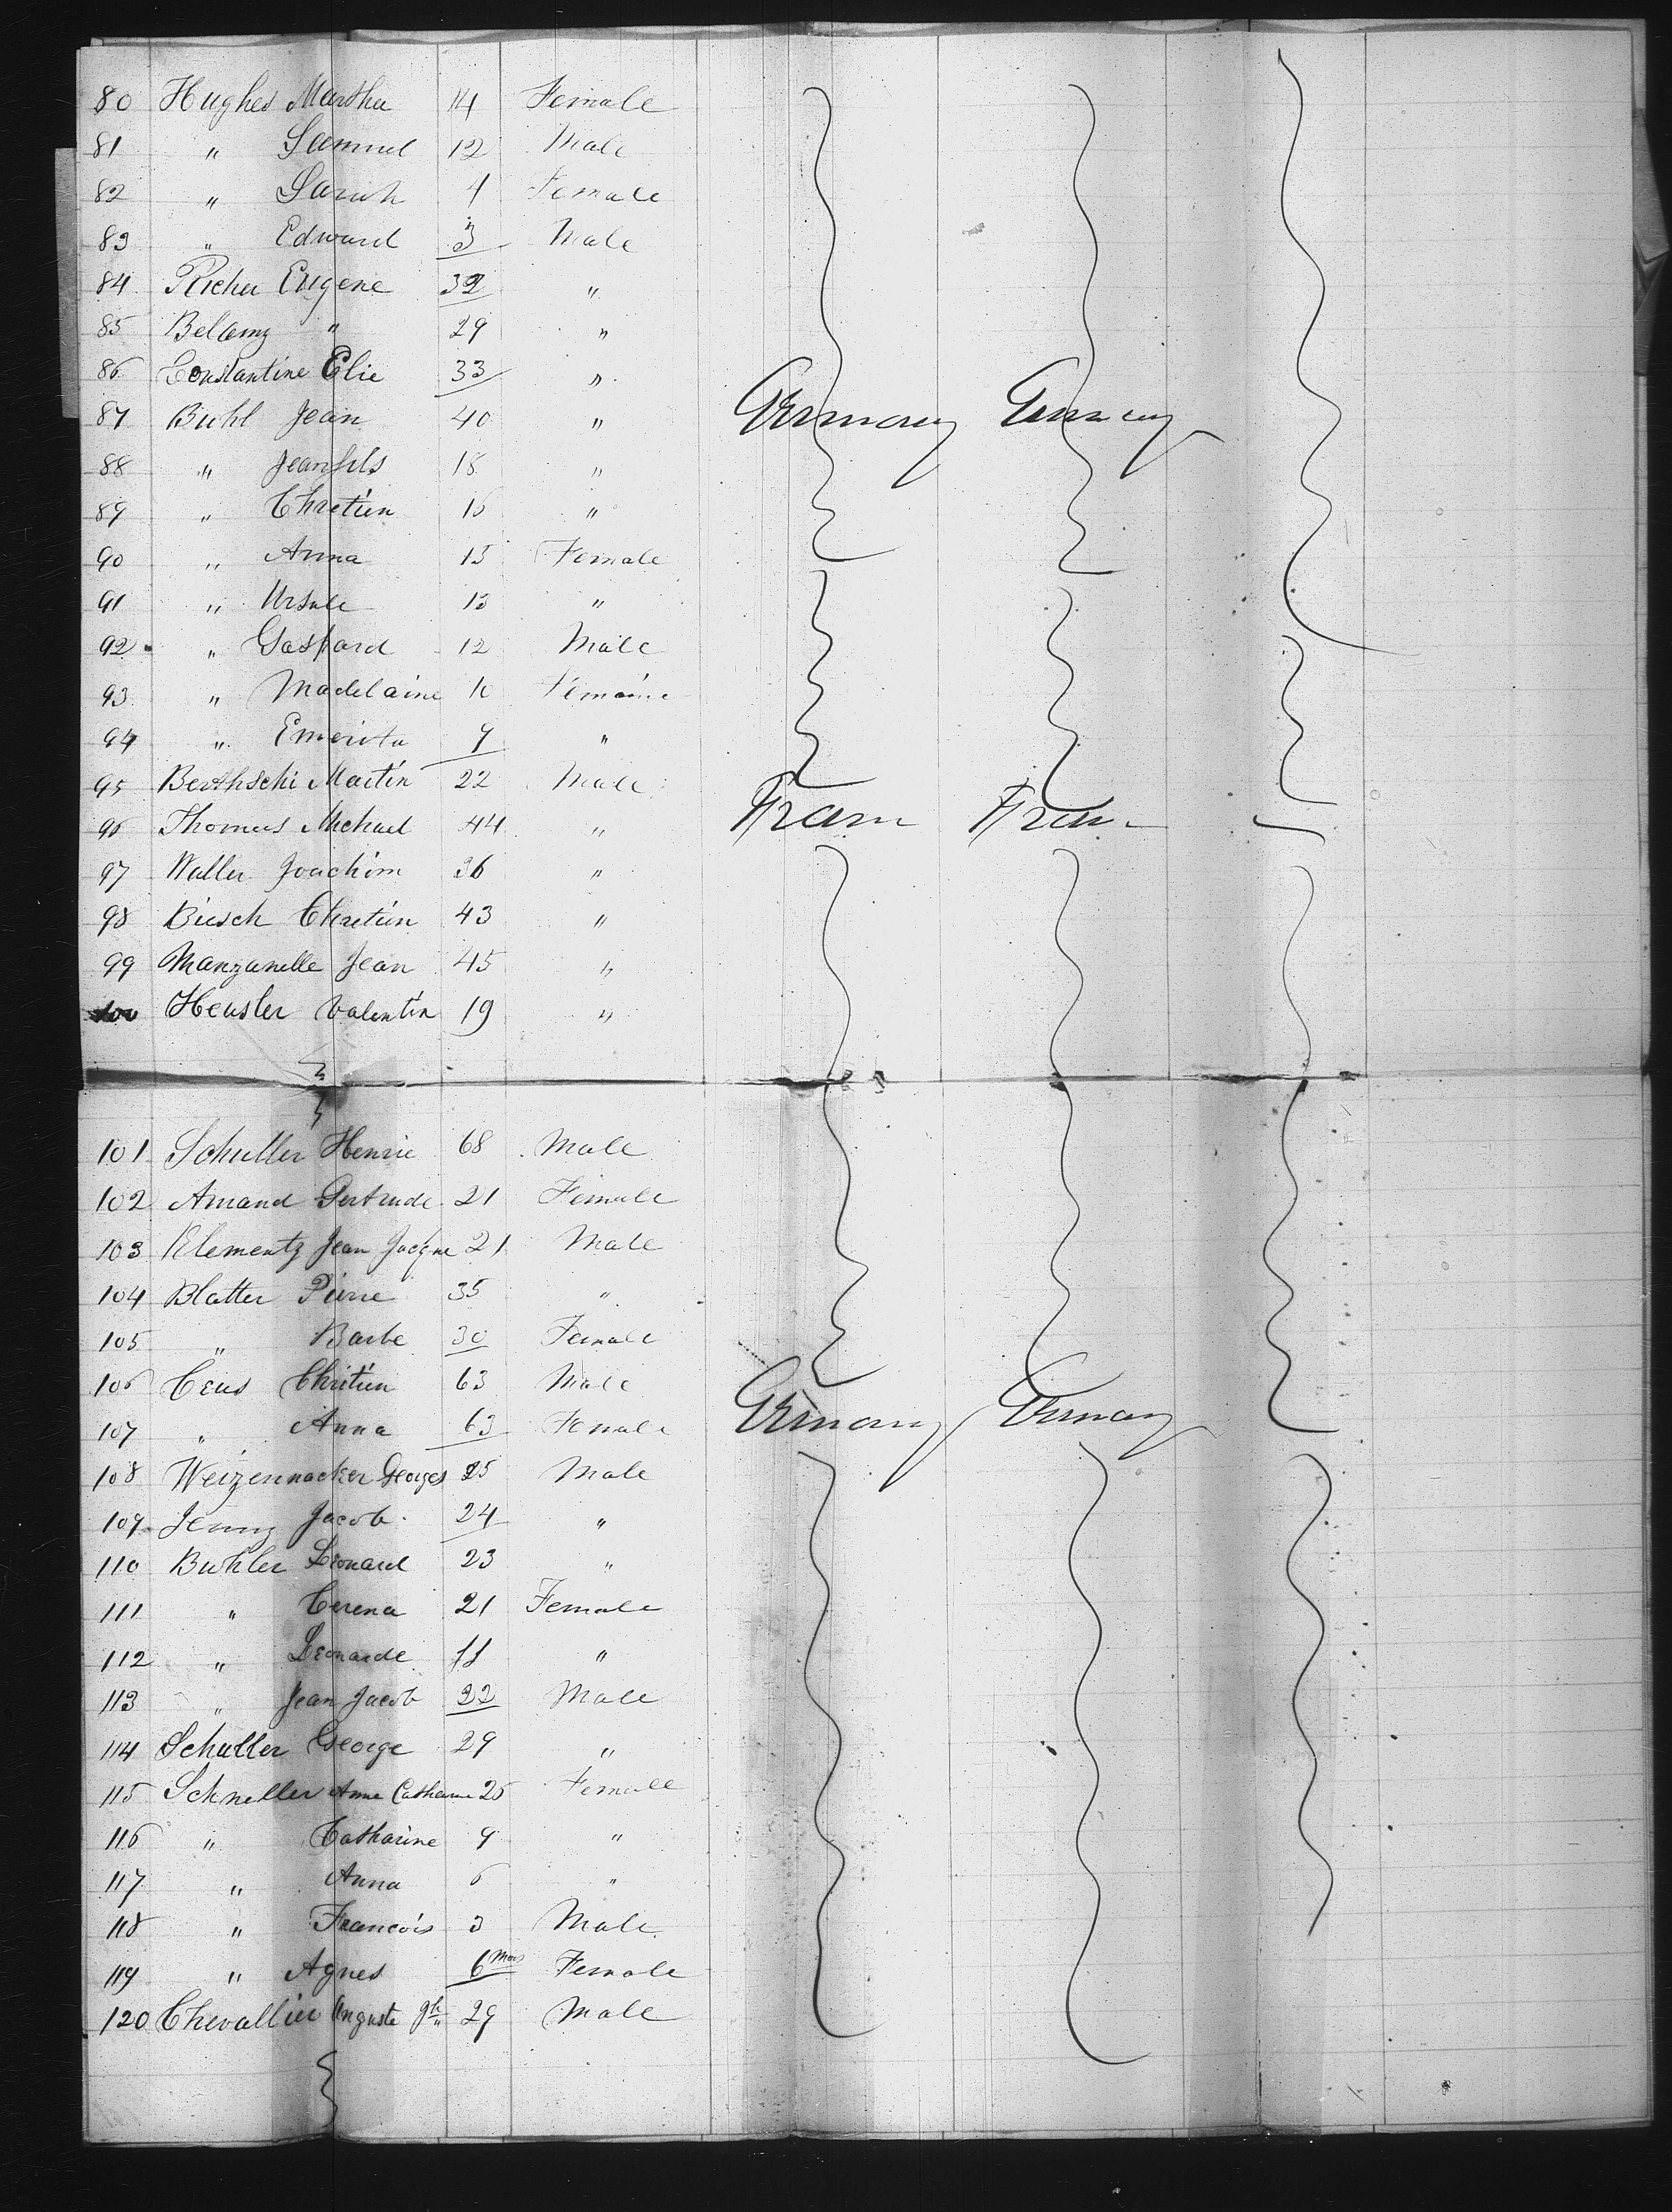 80 Hughes Martha 14 Female
81 " Samuel 12 Male
82 " Sarah 4 Female
83 " Edward 3 Male
84 Richer Eugene 32 "
85 Belamy " 29 "
86 Constantine Elie 33 "
87 Buhl Jean 40 " Germany Germany
88 " Jean fils 18 "
89 " Chretien 16 "
90 " Anna 15 Female
91 " Ursule 13 "
92 " Gaspard 12 Male
93 " Madelaine 10
94 " Emerita 9 "
95 Berthschi Martin 22 Male
96 Thomas Michael 44 " Fran Fran
97 Waller Joachim 36 "
98 Biesch Chretien 43 "
99 Manzanelle Jean 45 "
100 Heusler Valentin 19 "
101 Schuller Henrie 68 Male
102 Amand Gertrude 21 Female
103 Klementz Jean Jacque 21 Male
104 Blatter Pierre 35 "
105 " Barbe 30 Female
106 Ceus Chretien 63 Male
107 " Anna 63 Female Germany Germany
108 Weizennacker Georges 25 Male
109 Jenny Jacob 24 "
110 Buhler Leonard 23 "
111 " Cerena 21 Female
112 " Leonarde 11 "
113 " Jean Jacob 22 Male
114 Schuller George 29 "
115 Schneller Anne Catharine 25 Female
116 " Catharine 9 "
117 " Anna 6 "
118 " Francois 3 Male
119 " Agnes 6 Mos Female
120 Chevallier Auguste 29 Male